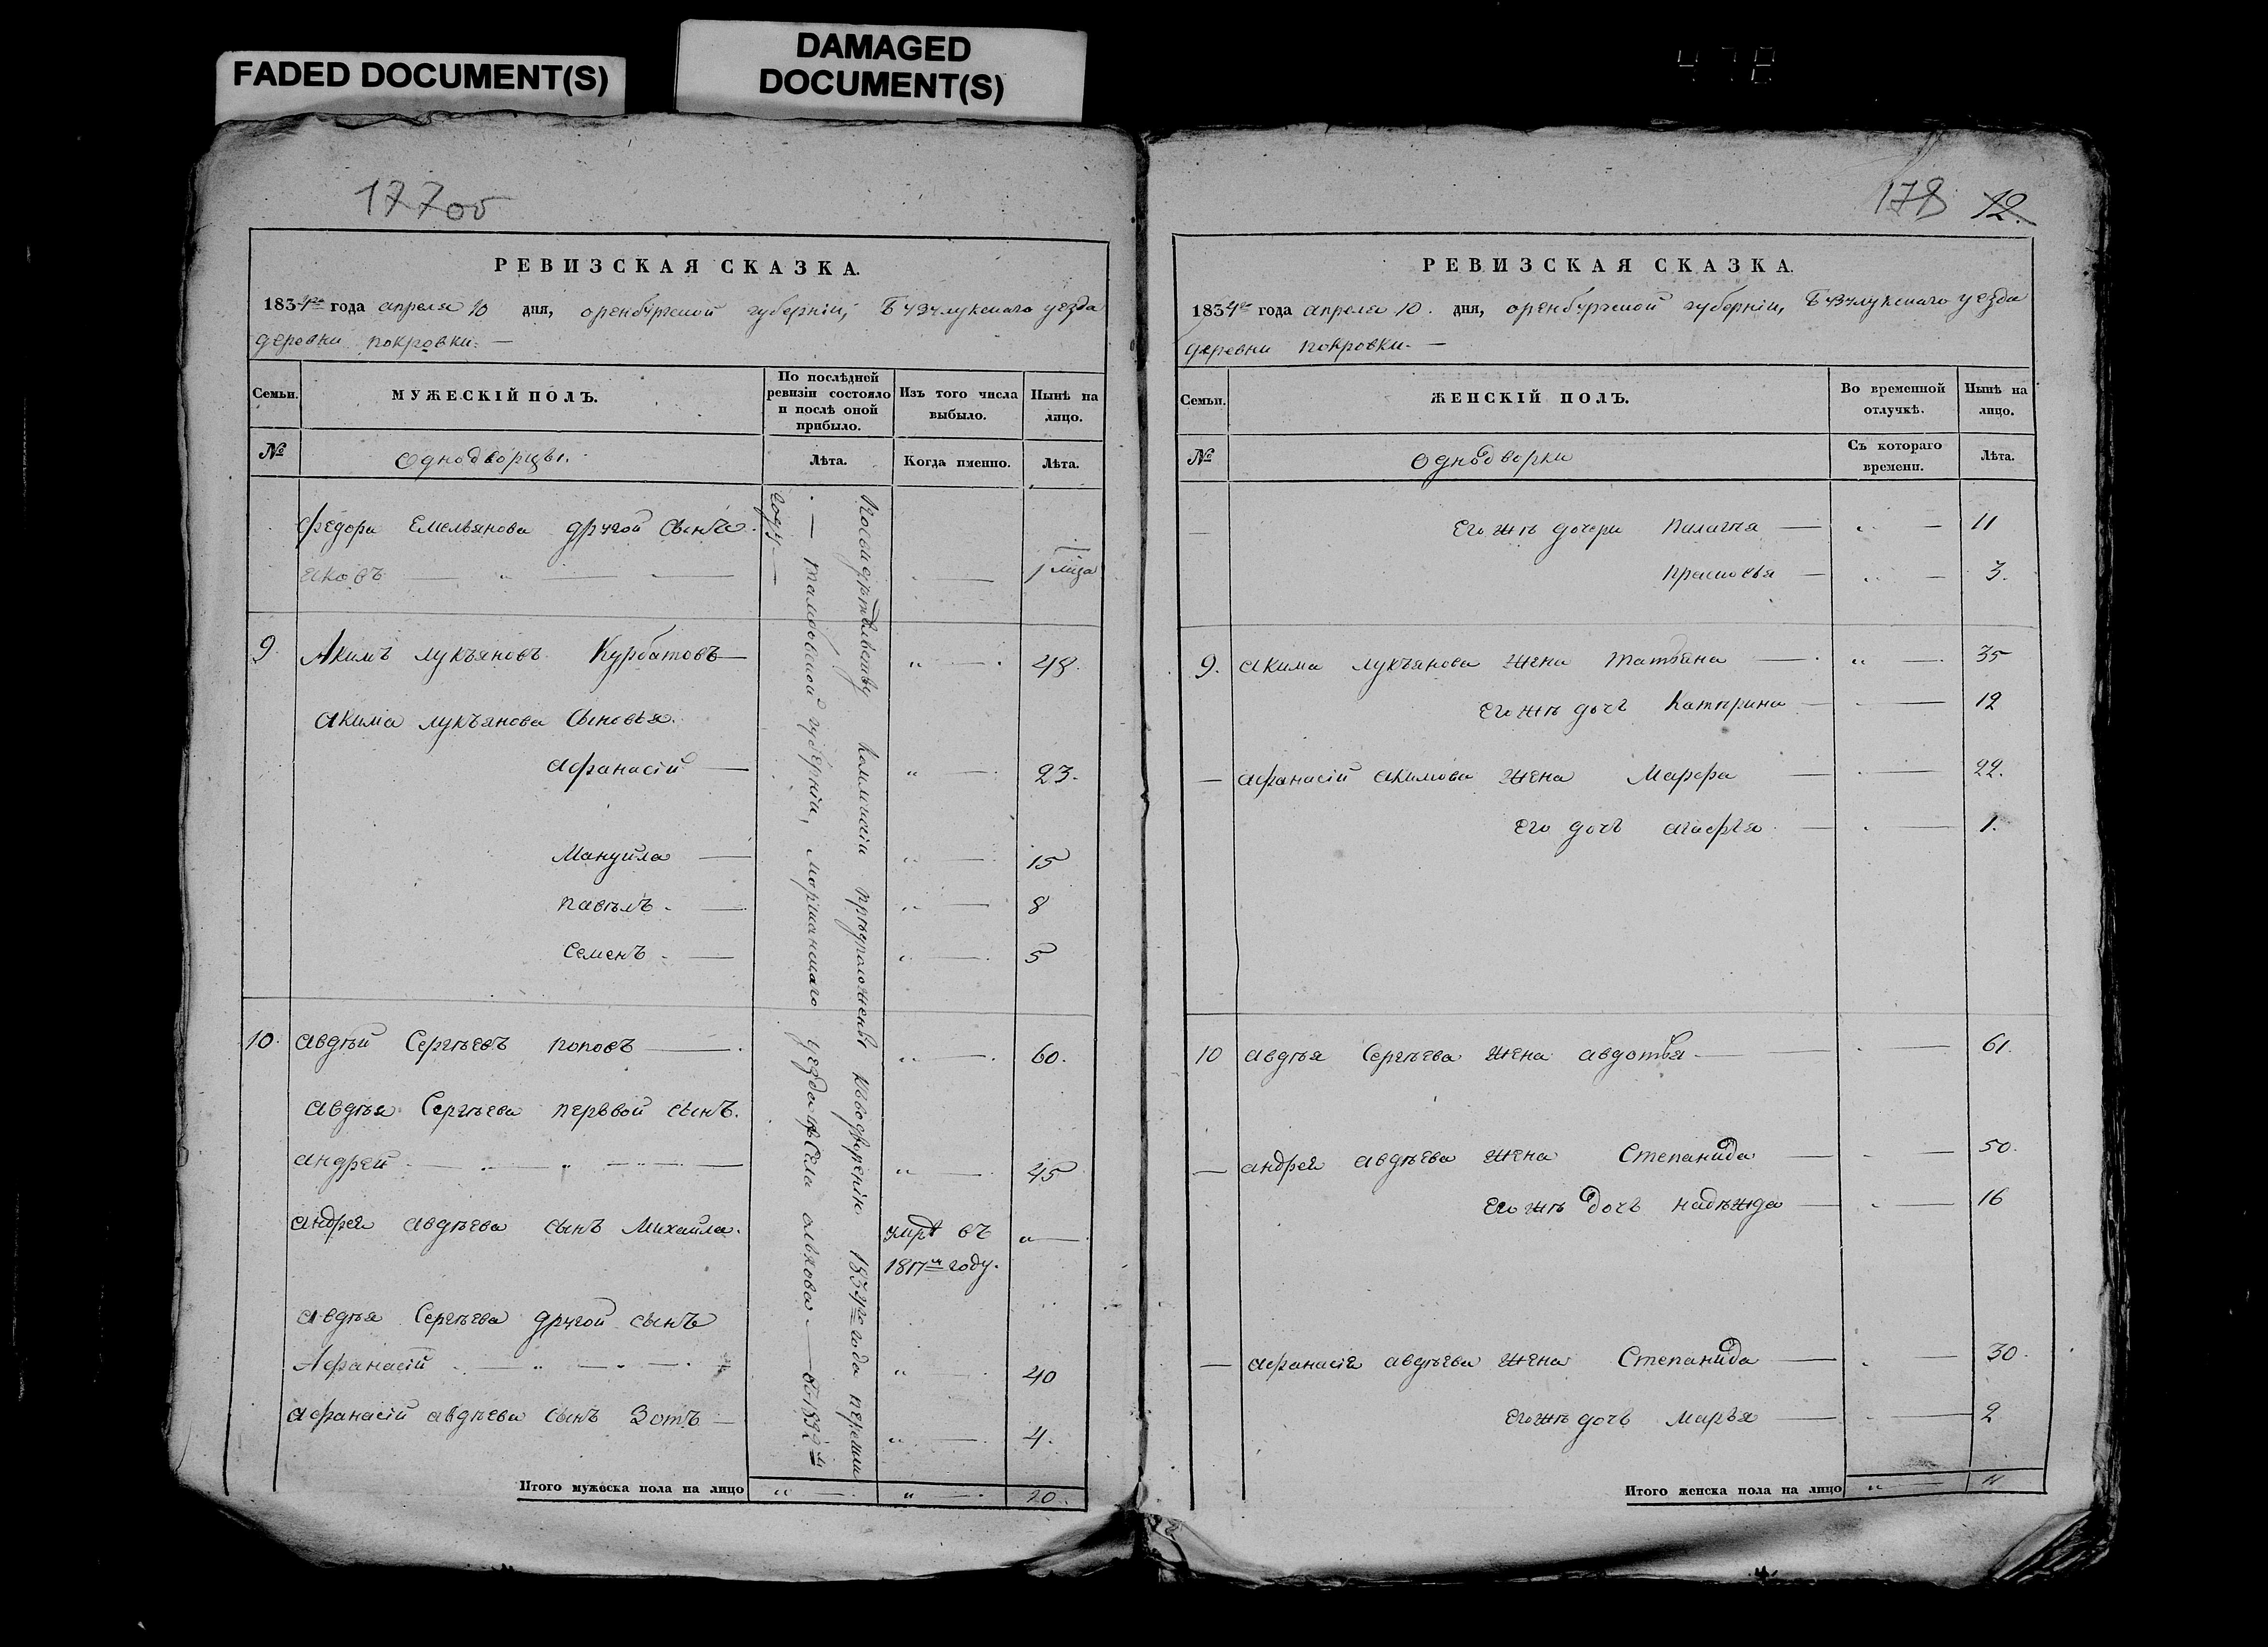 FADED DOCUMENT(S)
DAMAGED
DOCUMENT(S)
478
177об
РЕВИЗСКАЯ СКАЗКА.
1834го года апреля 10 дня, оренбургской губернiи, Бузулукскаго уезда
деревни покровки. —
Семьи.
МУЖЕСКІЙ ПОЛЪ.
По послѣдней ревизіи состояло и послѣ оной прибыло.
Изъ того числа выбыло.
Нынѣ на лицо.
№
Однодворцы.
Лѣта.
Когда именно.
Лѣта.
Федора Емельянова другой сынъ
Яковъ — " — — " — 1
9. Акимъ лукъяновъ Курбатовъ — " — 48.
Акима лукъянова Сыновья.
Афанасiй — " — 23.
Мануйла — " — 15
Павѣлъ. — " — 8
Семенъ. — " — 5
10. Авдѣй Сергѣевъ поповъ — " — 60.
Авдѣя Сергѣева первой сынъ.
андрей — " — 45
андрея авдѣева сынъ Михайла. умре въ " —
1817м году.
авдѣя Сергѣева другой сынъ
Афанасiй — " — 40
Афанасiй авдѣева сынъ Зотъ — " — 4.
Посвидѣтельству Коммисiи предположены къводворенiю 1834го года перешли
— тамбовской губернiи, моршанскаго уезда села алкова — в 1832м
году —
Итого мужеска пола на лицо " — " — 20.
178 12.
РЕВИЗСКАЯ СКАЗКА.
1834го года апреля 10. дня, оренбургской губернiи, Бузулукскаго уезда
деревни покровки. —
Семьи.
ЖЕНСКІЙ ПОЛЪ.
Во временной отлучкѣ.
Нынѣ на лицо.
№
Однодворки
Съ котораго времени.
Лѣта.
— Его жѣ дочери Пилагѣя — " — 11
Прасковья — " — 3.
9. Акима лукъянова жена татьяна — " — 35
Его жѣ дочь Катѣрина — " — 12
— Афанасiй акимова жена Марфа — " — 22.
Его дочь агафья — " — 1.
10 авдѣя Сергѣева жена авдотья — " — 61.
— андрея авдѣева жена Степанида — " — 50.
Его жѣ дочь надѣжда — " — 16
— афанасiя авдѣева жена Степанида — " — 30.
Его жѣ дочь марья — " — 2
Итого женска пола на лицо " — 11